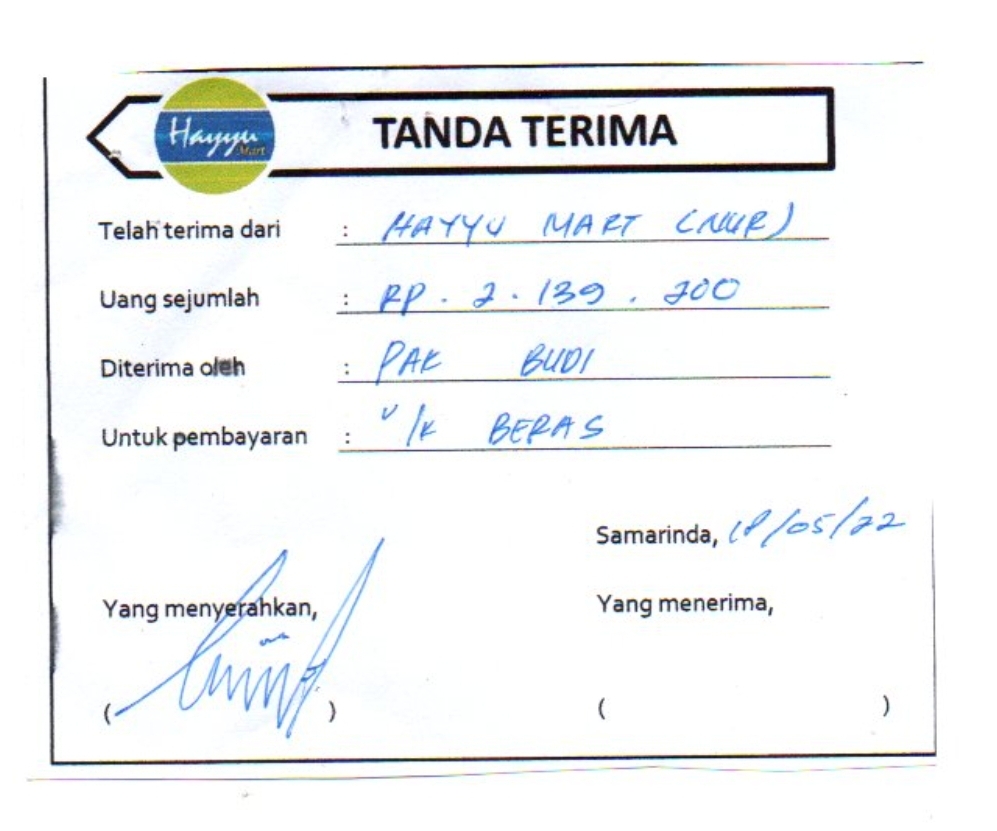 Hayyu
Mart
TANDA TERIMA
Telah terima dari : HAYYU MART (NUR)
Uang sejumlah : RP. 2.139.200
Diterima oleh : PAK BUDI
Untuk pembayaran : U/K BERAS
Samarinda, 18/05/22
Yang menyerahkan, Yang menerima,
( ) ( )